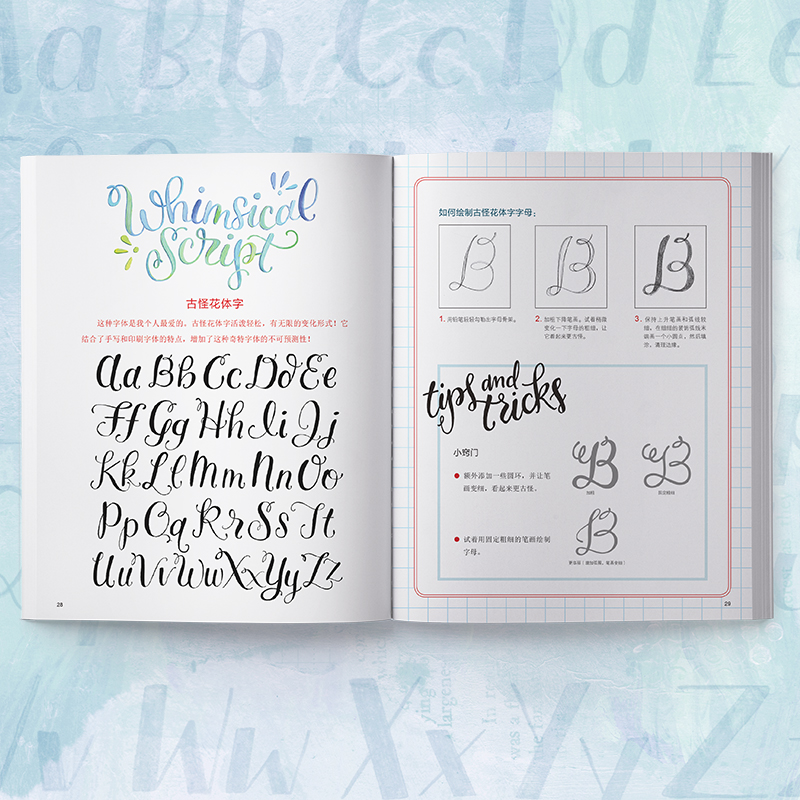 Aa Bb Cc Dd Ee
Whimsical
Script
古怪花体字
这种字体是我个人最爱的。古怪花体字活泼轻松，有无限的变化形式！它
结合了手写和印刷字体的特点，增加了这种奇特字体的不可预测性！
Aa Bb Cc Dd Ee
Ff Gg Hh Ii Jj
Kk Ll Mm Nn Oo
Pp Qq Rr Ss Tt
Uu Vv Ww Xx Yy Zz
28
如何绘制古怪花体字字母：
B B B
1. 用铅笔轻轻勾勒出字母骨架。
2. 加粗下降笔画。试着稍微
变化一下字母的粗细，让
它看起来更古怪。
3. 保持上升笔画和弧线较
细，在细细的紧密弧线末
端画一个小圆点。然后填
色，清理边缘。
tips and
tricks
小窍门
额外添加一些圆环，并让笔
画变细，看起来更古怪。
B B
试着用固定粗细的笔画绘制
字母。
B
29
w Xx Yy Z